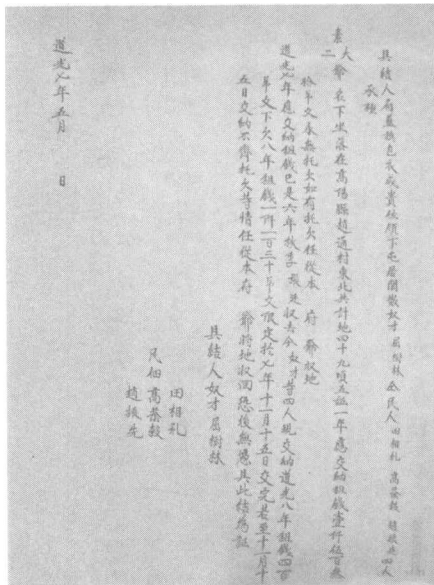 具結人廂藍旗包衣成貴佐領下屯居閒散奴才屈樹林 仝民人田相礼 高發毅 趙振先四人
承種
大爺
二爺名下坐落在高陽縣趙通村東北共計地四十九項五畝一年應交納租錢壹仟伍百吊
按年交春無托欠如有托欠任從本 府 爺收地
道光七年應交納租錢已是六年被李 收去今奴才等四人現交納道光八年租錢四百
吊文下欠八年租錢一仟一百三十吊文限定於七年十一月十五日交完若至十一月十
五日交納不齊托欠等情任從本府 爺將地收回恐後無憑具此結為証
具結人奴才屈樹林
田相礼
民佃高發毅
趙振先
道光七年五月 日